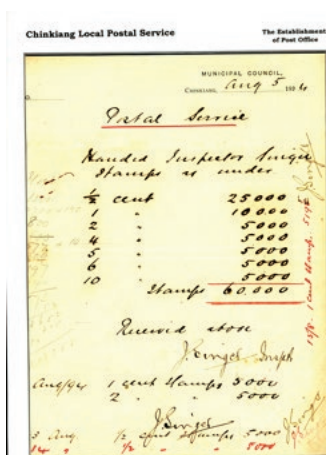 Chinkiang Local Postal Service
The Establishment
of Post Office
MUNICIPAL COUNCIL,
CHINKIANG, Aug 5 189
Postal Service
Handed Inspector
Stamps as under
½ cent 25000
1 " 10000
2 " 5000
4 " 5000
5 " 5000
6 " 5000
10 " 5000
Stamps 60.000
Received above
1 cent Stamps 5000
2 " " 5000
3 Aug ½ cent Stamps 5000
14 " ½ " " 5000